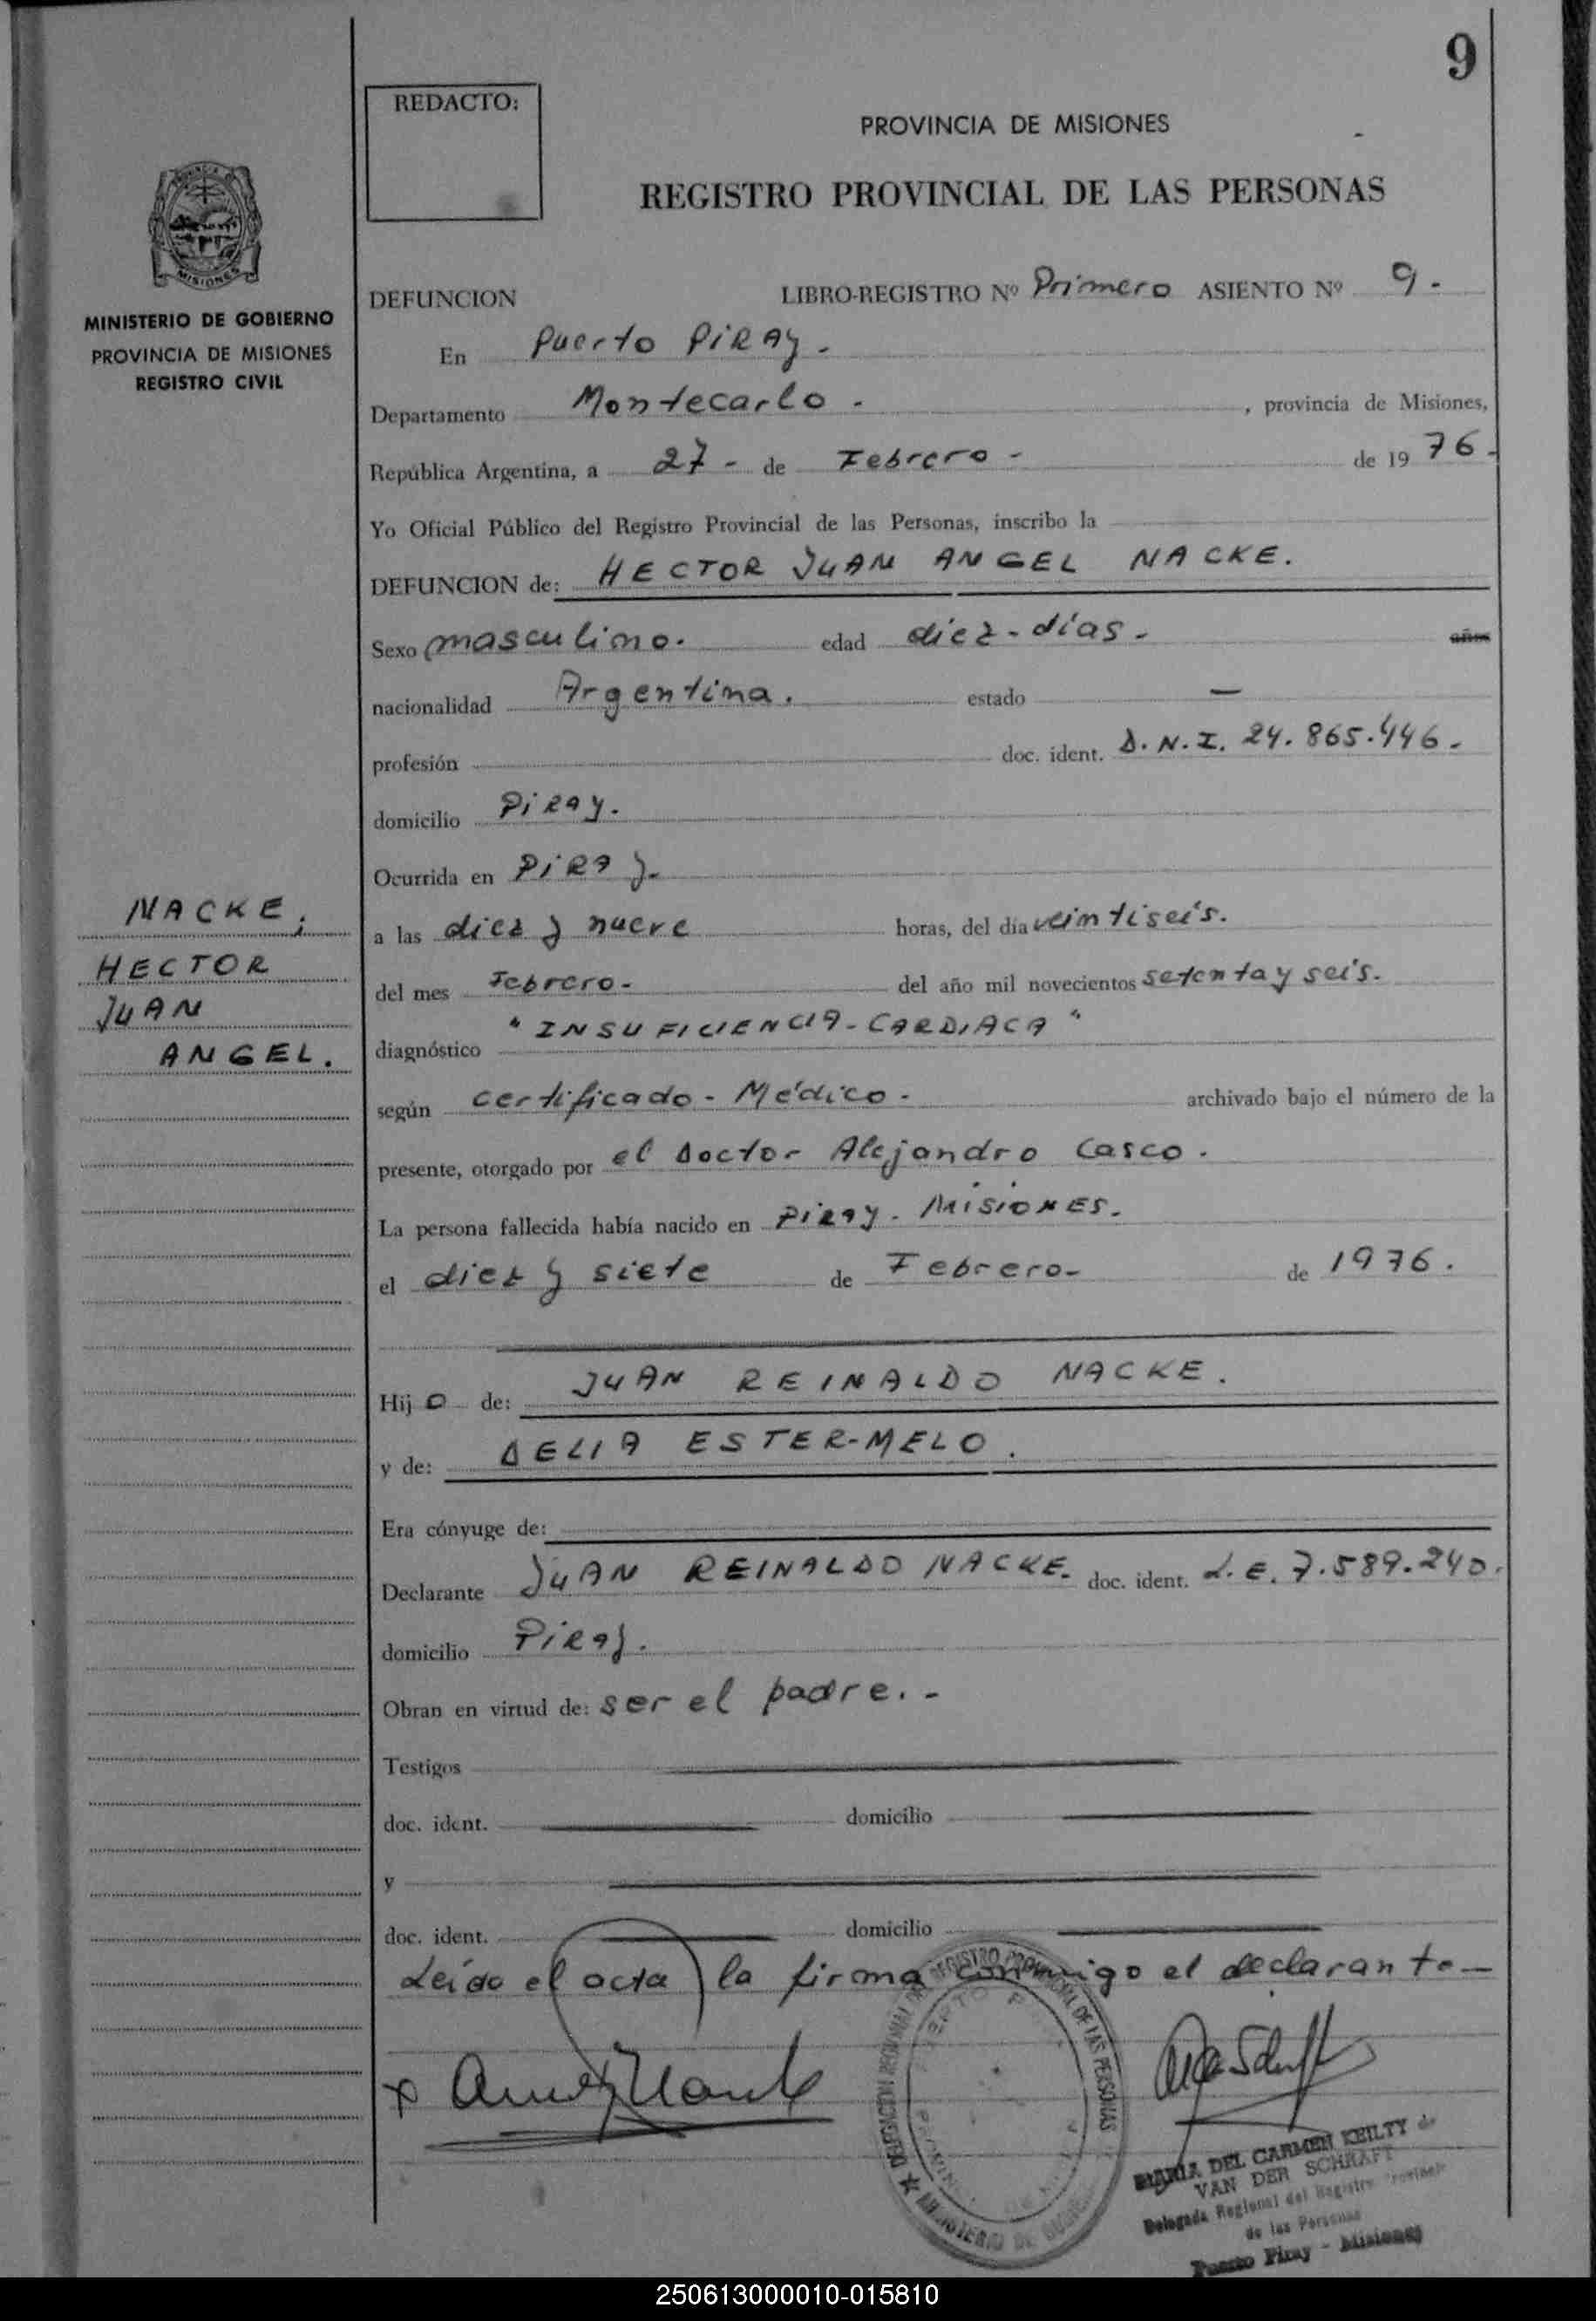 9
REDACTO:
PROVINCIA DE MISIONES
REGISTRO PROVINCIAL DE LAS PERSONAS
MISIONES
MINISTERIO DE GOBIERNO
PROVINCIA DE MISIONES
REGISTRO CIVIL
DEFUNCION LIBRO-REGISTRO Nº Primero ASIENTO Nº 9.
En Puerto PiRAy.
Departamento Montecarlo. , provincia de Misiones,
República Argentina, a 27- de Febrero- de 19 76.
Yo Oficial Público del Registro Provincial de las Personas, inscribo la
DEFUNCION de: HECTOR JUAN ANGEL NACKE.
Sexo masculino. edad diez-días- años
nacionalidad Argentina. estado —
profesión doc. ident. D.N.I. 24.865.446.
domicilio PiRay.
Ocurrida en PiRay.
NACKE,
HECTOR
JUAN
ANGEL.
a las diez y nueve horas, del día veintiseis.
del mes Febrero- del año mil novecientos setenta y seis.
diagnóstico "INSUFICIENCIA-CARDIACA"
según certificado-Médico- archivado bajo el número de la
presente, otorgado por el Doctor Alejandro Casco.
La persona fallecida había nacido en Piray- MISIONES.
el diez y siete de Febrero- de 1976.
Hij o de: JUAN REINALDO NACKE.
y de: DELIA ESTER-MELO.
Era cónyuge de:
Declarante JUAN REINALDO NACKE. doc. ident. L.E. 7.589.240.
domicilio PiRay.
Obran en virtud de: ser el padre.-
Testigos
doc. ident. domicilio
y
doc. ident. domicilio
Leída el acta la firma conmigo el declarante—
MARIA DEL CARMEN KEILTY de
VAN DER SCHRAFT
Delegada Regional del Registro Provincial
de las Personas
Puerto Piray - Misiones
250613000010-015810